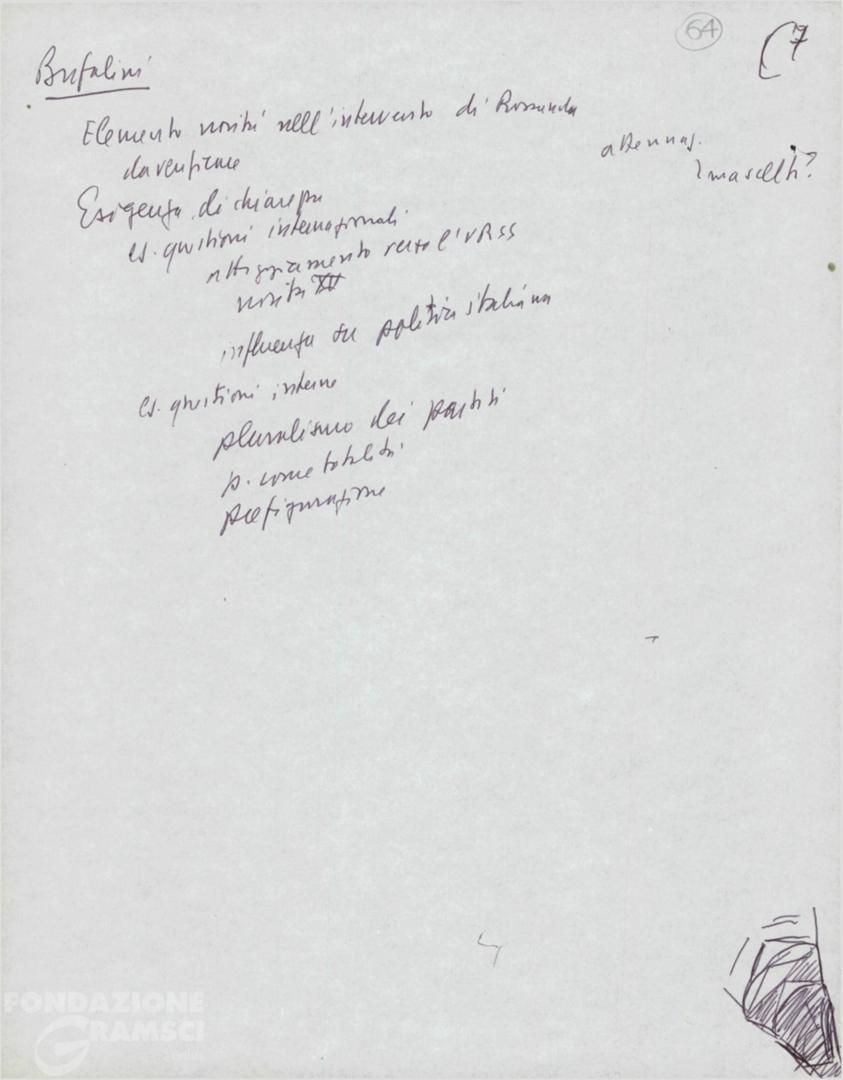 64
7
Bufalini
Elemento novità nell'intervento di Rossanda
da verificare
attenuaz.
mascelli?
Esigenza di chiarezza
es. questioni internazionali
atteggiamento verso l'URSS
novità XII
influenza su politica italiana
es. questioni interne
pluralismo dei partiti
p. come totalità
prefigurazione
FONDAZIONE
GRAMSCI